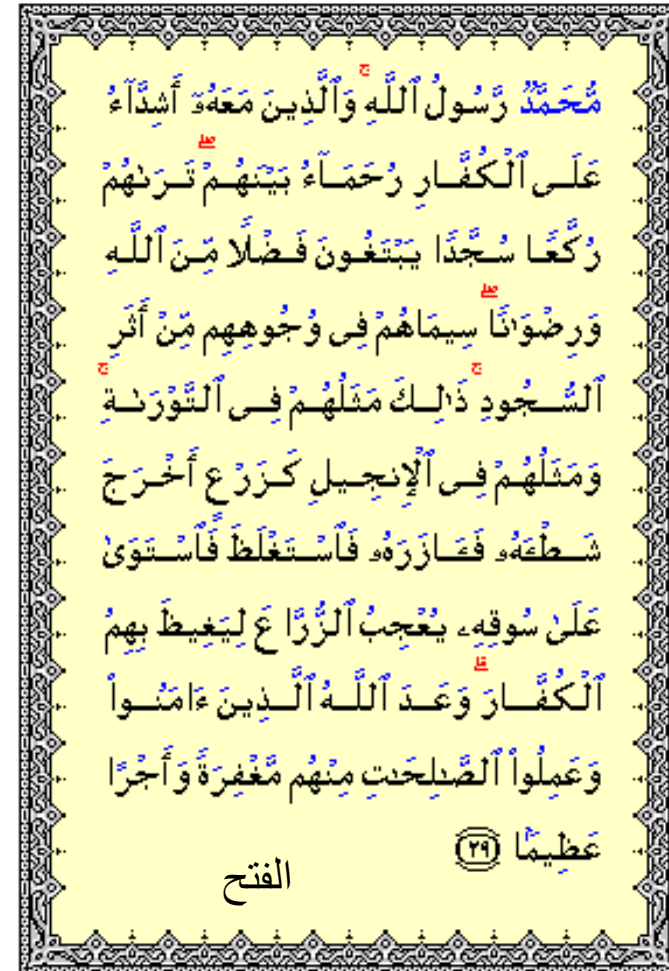 مُّحَمَّدٌ رَّسُولُ ٱللَّهِ ۚ وَٱلَّذِينَ مَعَهُۥٓ أَشِدَّآءُ
عَلَى ٱلْكُفَّارِ رُحَمَآءُ بَيْنَهُمْ ۖ تَرَىٰهُمْ
رُكَّعًا سُجَّدًا يَبْتَغُونَ فَضْلًا مِّنَ ٱللَّهِ
وَرِضْوَٰنًا ۖ سِيمَاهُمْ فِى وُجُوهِهِم مِّنْ أَثَرِ
ٱلسُّجُودِ ۚ ذَٰلِكَ مَثَلُهُمْ فِى ٱلتَّوْرَىٰةِ ۚ
وَمَثَلُهُمْ فِى ٱلْإِنجِيلِ كَزَرْعٍ أَخْرَجَ
شَطْـَٔهُۥ فَـَٔازَرَهُۥ فَٱسْتَغْلَظَ فَٱسْتَوَىٰ
عَلَىٰ سُوقِهِۦ يُعْجِبُ ٱلزُّرَّاعَ لِيَغِيظَ بِهِمُ
ٱلْكُفَّارَ ۗ وَعَدَ ٱللَّهُ ٱلَّذِينَ ءَامَنُوا۟
وَعَمِلُوا۟ ٱلصَّٰلِحَٰتِ مِنْهُم مَّغْفِرَةً وَأَجْرًا
عَظِيمًۢا ٢٩
الفتح